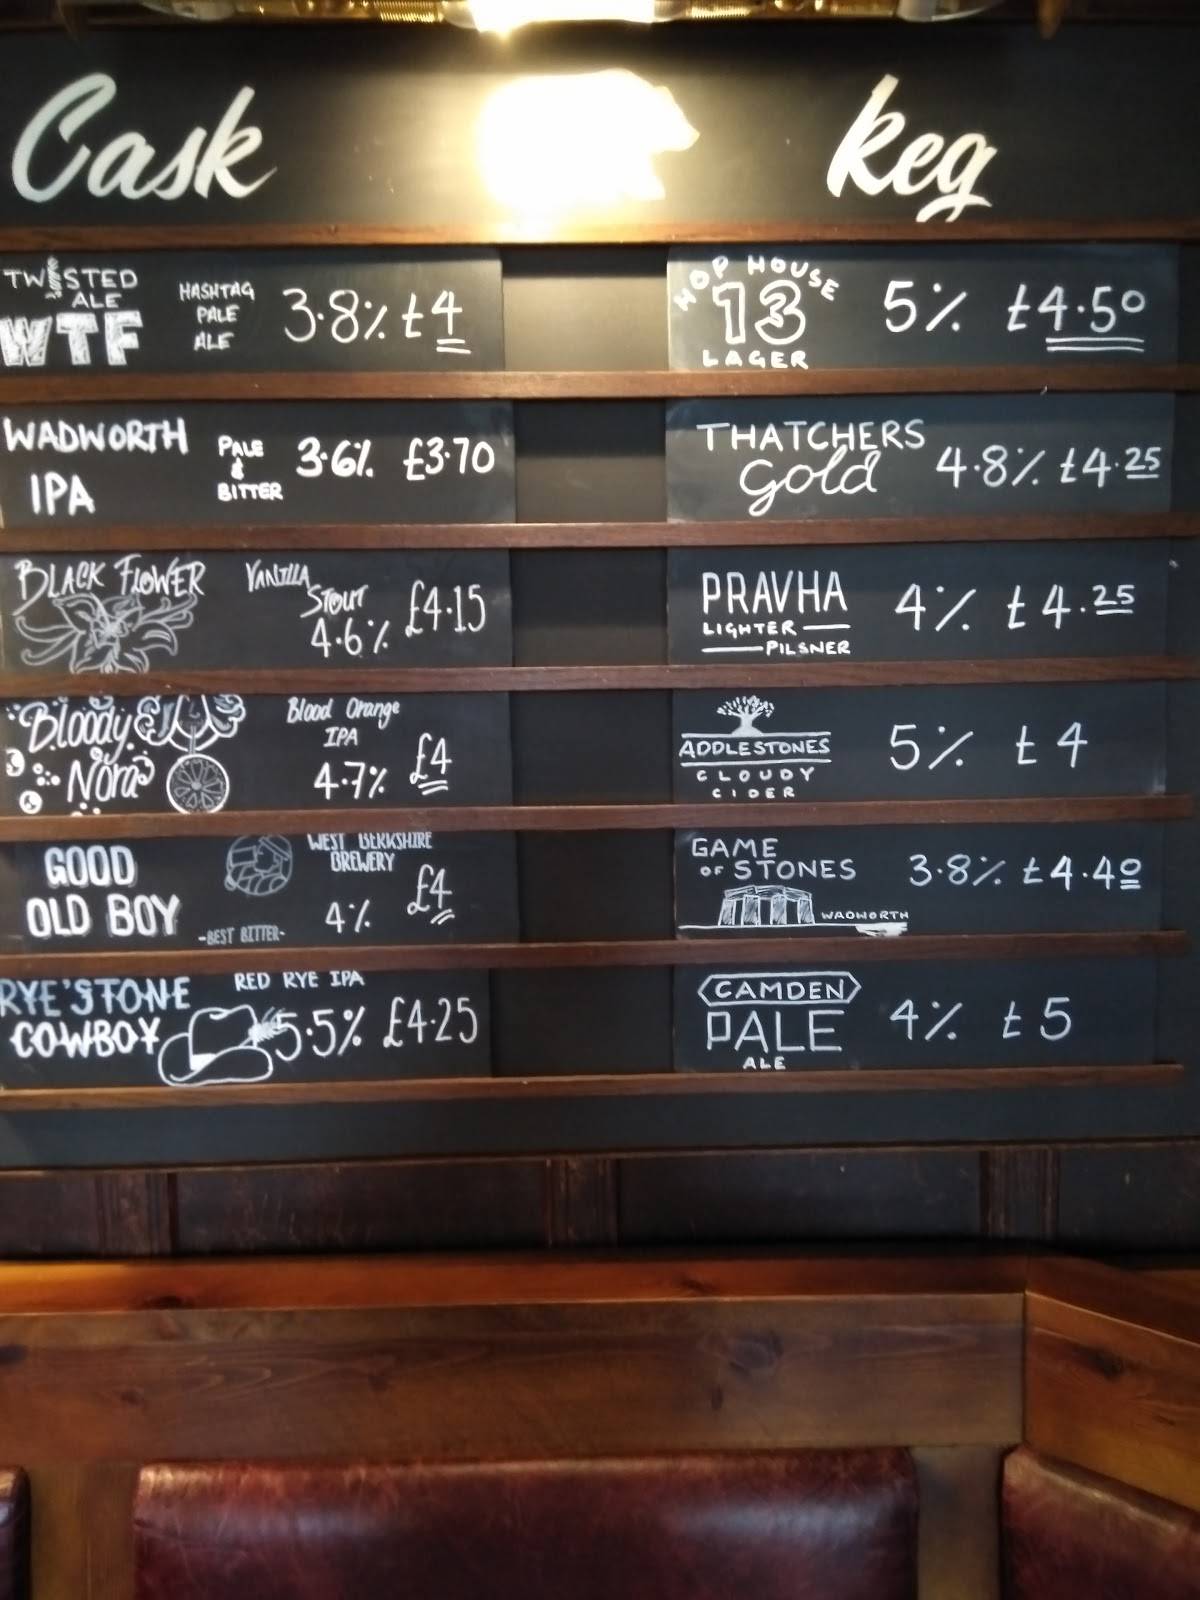 Cask
TWISTED
ALE
WTF
HASHTAG
PALE
ALE
3.8% £4
WADWORTH
IPA
PALE
&
BITTER
3.6% £3.70
BLACK FLOWER
VANILLA
STOUT
4.6% £4.15
Bloody
Nora
Blood Orange
IPA
4.7% £4
GOOD
OLD BOY
WEST BERKSHIRE
BREWERY
4% £4
-BEST BITTER-
RYE'STONE
COWBOY
RED RYE IPA
5.5% £4.25
keg
HOP HOUSE
13
LAGER
5% £4.50
THATCHERS
Gold
4.8% £4.25
PRAVHA
LIGHTER
PILSNER
4% £4.25
ADDLESTONES
CLOUDY
CIDER
5% £4
GAME
OF STONES
WADWORTH
3.8% £4.40
CAMDEN
PALE
ALE
4% £5